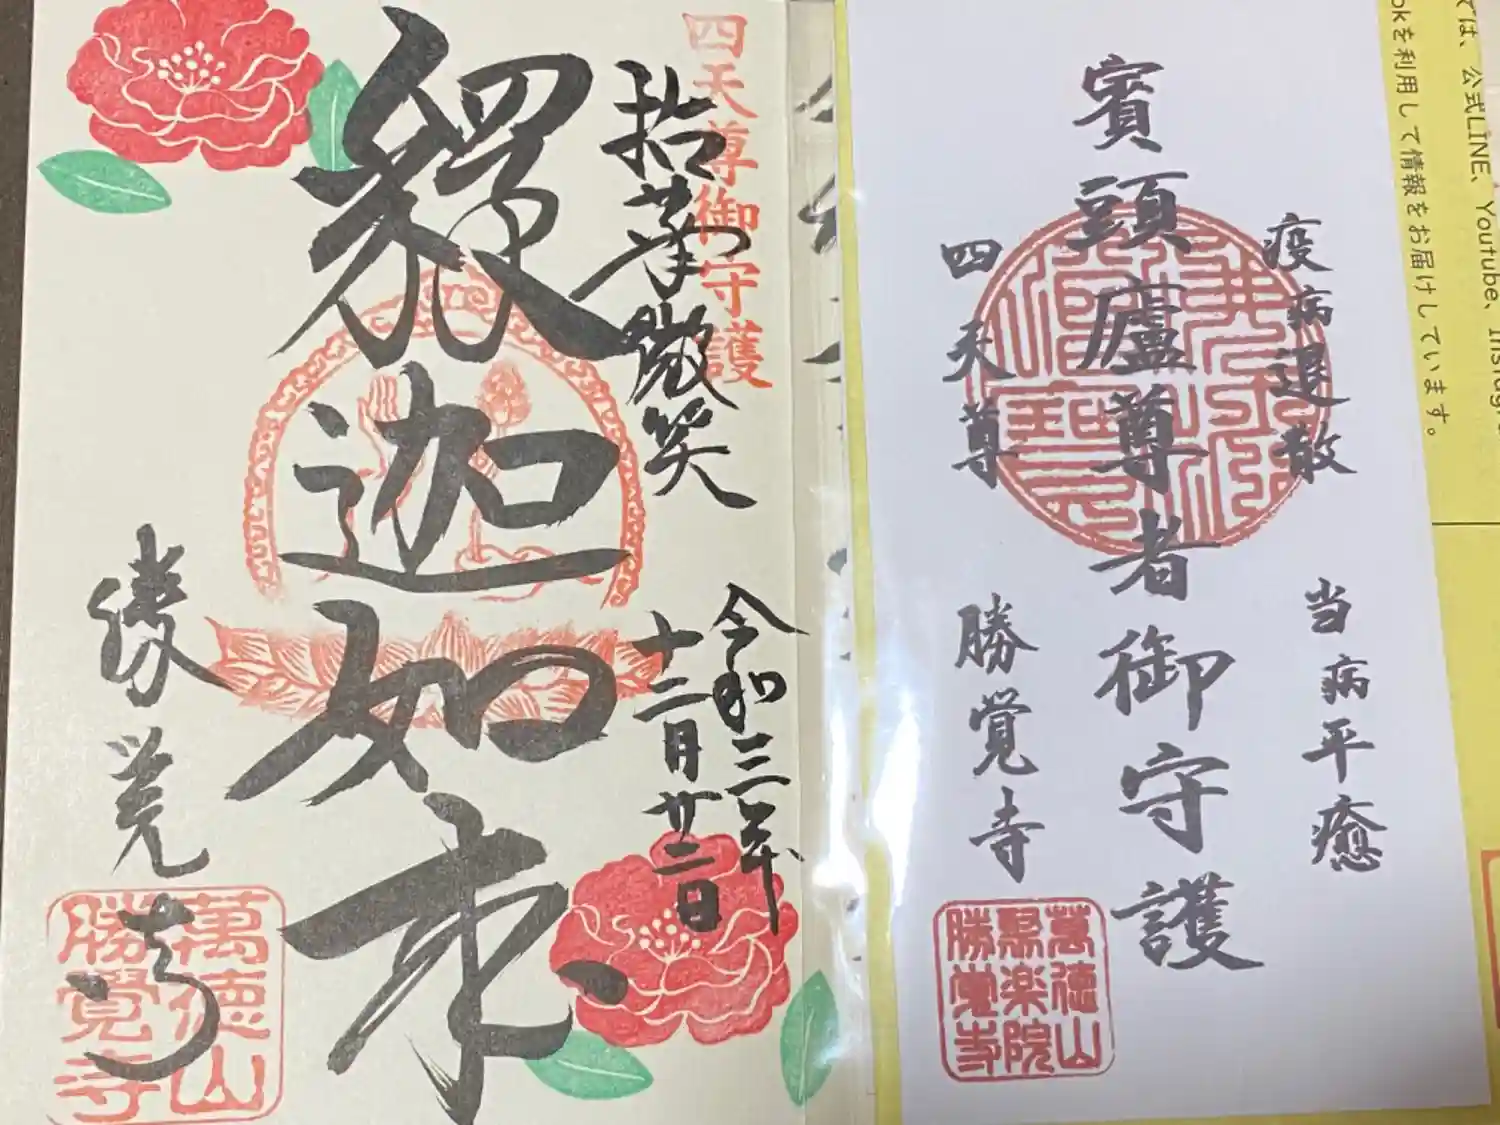 四天尊御守護
拈華微笑
釋迦如来
令和三年
十二月廿二日
勝覚寺
萬徳山
勝覺寺
疫病退散
当病平癒
賓頭廬尊者御守護
四天尊
勝覚寺
萬徳山
聚楽院
勝覚寺
では、公式LINE、Youtube、Instagr
okを利用して情報をお届けしています。